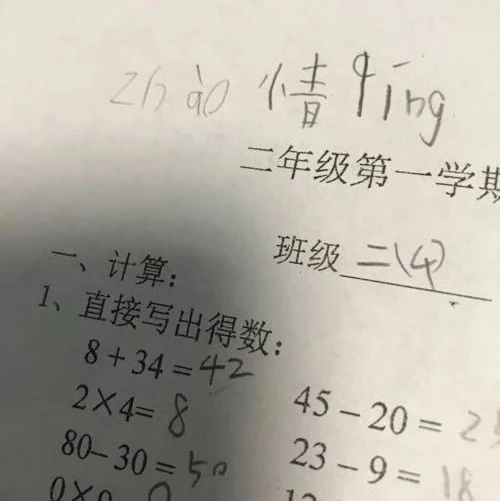 zhào 情 qīng
二年级第一学期
班级 二(4)
一、计算：
1、直接写出得数：
8+34=42
2×4=8
45-20=2
80-30=50
23-9=18